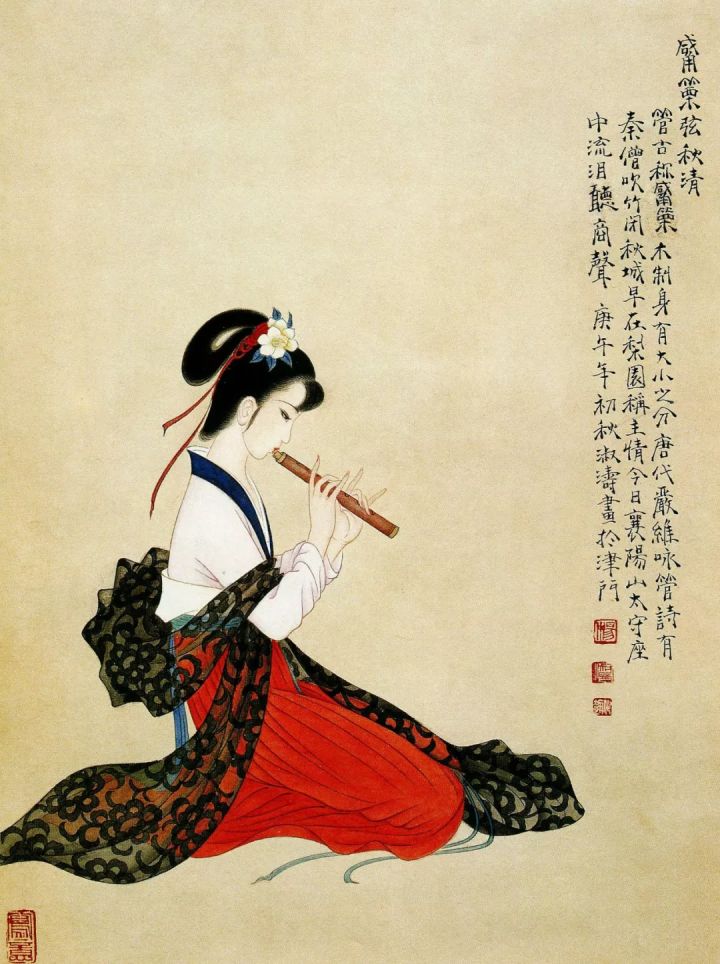 觱篥弦秋清
管古称觱篥木制身有大小之分唐代嚴維咏管詩有
秦僧吹竹闭秋城早在梨園稱主情今日襄陽山太守座
中流泪聽商聲 庚午年初秋淑濤畫於津門